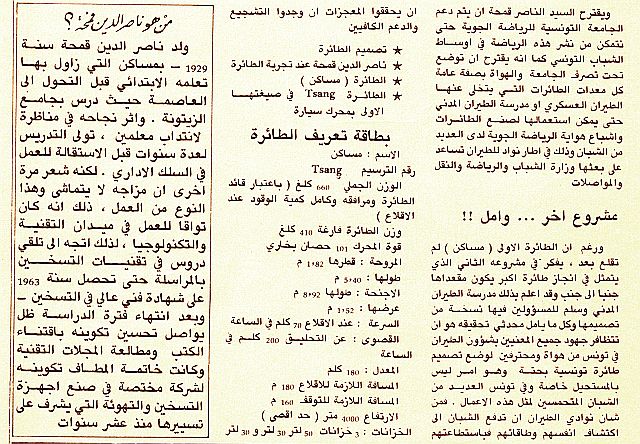 ويقترح السيد الناصر قمحة ان يتم دعم
الجامعة التونسية للرياضة الجوية حتى
نتمكن من نشر هذه الرياضة في اوساط
الشباب التونسي كما انه يقترح ان توضع
تحت تصرف الجامعة والهواة بصفة عامة
كل معدات الطائرات التي يتخلى عنها
الطيران العسكري او مدرسة الطيران المدني
حتى يمكن استعمالها لصنع الطائرات
واشباع هواية الرياضة الجوية لدى العديد
من الشبان وذلك في اطار نواد للطيران تساعد
على بعثها وزارة الشباب والرياضة والنقل
والمواصلات
مشروع اخر ... وامل !!
ورغم ان الطائرة الاولى ( مساكن ) لم
تقلع بعد ، يفكر في مشروعه الثاني الذي
يتمثل في انجاز طائرة اكبر يكون مقعداها
جنبا الى جنب وقد اعلم بذلك مدرسة الطيران
المدني وسلم للمسؤولين فيها نسخة من
تصميمها وكل ما يامل محدثي تحقيقه هو ان
تتظافر جهود جميع المعنيين بشؤون الطيران
في تونس من هواة ومحترفين لوضع تصميم
طائرة تونسية بحتة وهو امر ليس
بالمستحيل خاصة وفي تونس العديد من
الشبان المتحمسين لمثل هذه الاعمال . فمن
شان نوادي الطيران ان تدفع الشبان الى
اكتشاف انفسهم وطاقاتهم فباستطاعتهم
ان يحققوا المعجزات ان وجدوا التشجيع
والدعم الكافيين
★ تصميم الطائرة
★ ناصر الدين قمحة عند تجربة الطائرة
★ الطائرة ( مساكن )
★ الطائرة Tsang في صيغتها
الاولى بمحرك سيارة
بطاقة تعريف الطائرة
الاسم : مساكن
رقم الترسيم Tsang
الوزن الجملي 660 كلغ ( باعتبار قائد
الطائرة ومرافقه وكامل كمية الوقود عند
الاقلاع )
وزن الطائرة فارغة 410 كلغ
قوة المحرك 101 حصان بخاري
المروحة : قطرها 1٬82 م
طولها : 5٬40 م
الاجنحة : طولها 8٬92 م
عرضها : 1٬52 م
السرعة : عند الاقلاع 70 كلم في الساعة
القصوى : عن التحليق 200 كلم في
الساعة
المعدل : 180 كلم
المسافة اللازمة للاقلاع 180 م
المسافة اللازمة للتوقف 160 م
الارتفاع 4000 متر ( حد اقصى )
الخزانات : 3 خزانات 50 لتر 30 لتر و 30 لتر
من هو ناصر الدين قمحة ؟
ولد ناصر الدين قمحة سنة
1929 - بمساكن التي زاول بها
تعلمه الابتدائي قبل التحول الى
العاصمة حيث درس بجامع
الزيتونة . واثر نجاحه في مناظرة
لانتداب معلمين ، تولى التدريس
لعدة سنوات قبل الاستقالة للعمل
في السلك الاداري . لكنه شعر مرة
اخرى ان مزاجه لا يتماشى وهذا
النوع من العمل ، ذلك انه كان
تواقا للعمل في ميدان التقنية
والتكنولوجيا ، لذلك اتجه الى تلقي
دروس في تقنيات التسخين
بالمراسلة حتى تحصل سنة 1963
على شهادة فني عالي في التسخين -
وبعد انتهاء فترة الدراسة ظل
يواصل تحسين تكوينه باقتناء
الكتب ومطالعة المجلات التقنية
وكانت خاتمة المطاف تكوينه
لشركة مختصة في صنع اجهزة
التسخين والتهوئة التي يشرف على
تسييرها منذ عشر سنوات